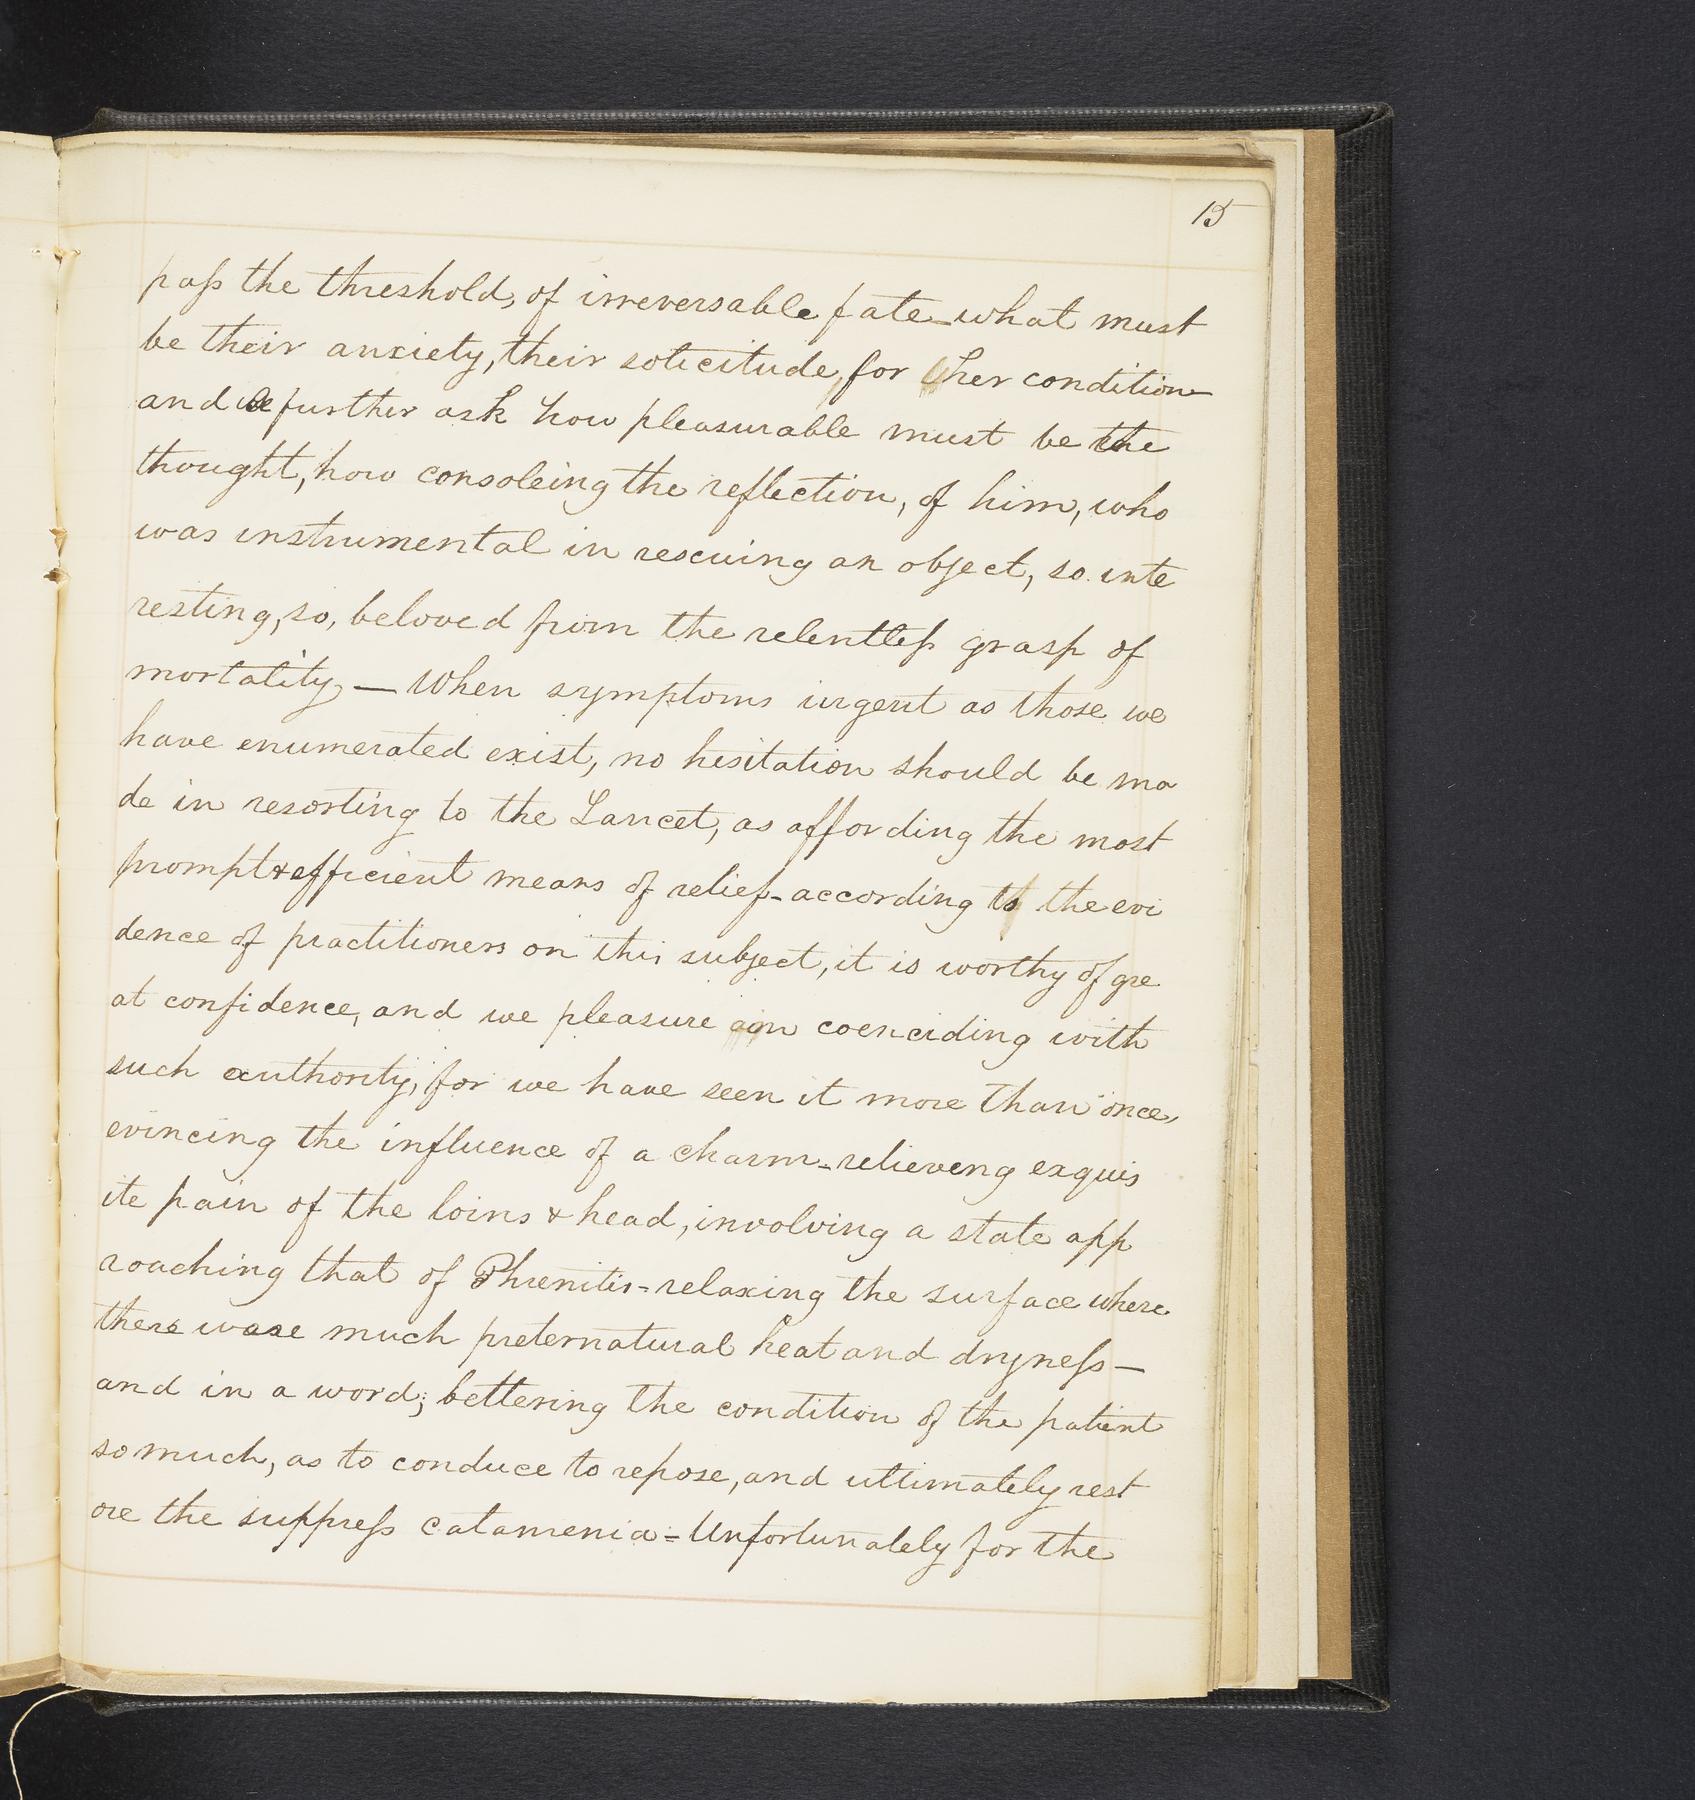 15
pass the threshold, of irreversable fate_what must
be their anxiety, their solicitude, for her condition
and we further ask how pleasurable must be the
thought, how consoleing the reflection, of him, who
was instrumental in rescuing an object, so inte
resting, so, beloved from the relentless grasp of
mortality, — When symptoms urgent as those we
have enumerated exist, no hesitation should be ma
de in resorting to the Lancet, as affording the most
prompt & efficient means of relief - according to the evi
dence of practitioners on this subject, it is worthy of gre
at confidence, and we pleasure in coenciding with
such authority, for we have seen it more than once,
evincing the influence of a charm - relieveng exquis
ite pain of the loins & head, involving a state app
roaching that of Phrenitis - relaxing the surface where
there wase much preternatural heat and dryness —
and in a word; bettering the condition of the patient
so much, as to conduce to repose, and ultimately rest
ore the suppress catamenia = Unfortunately for the